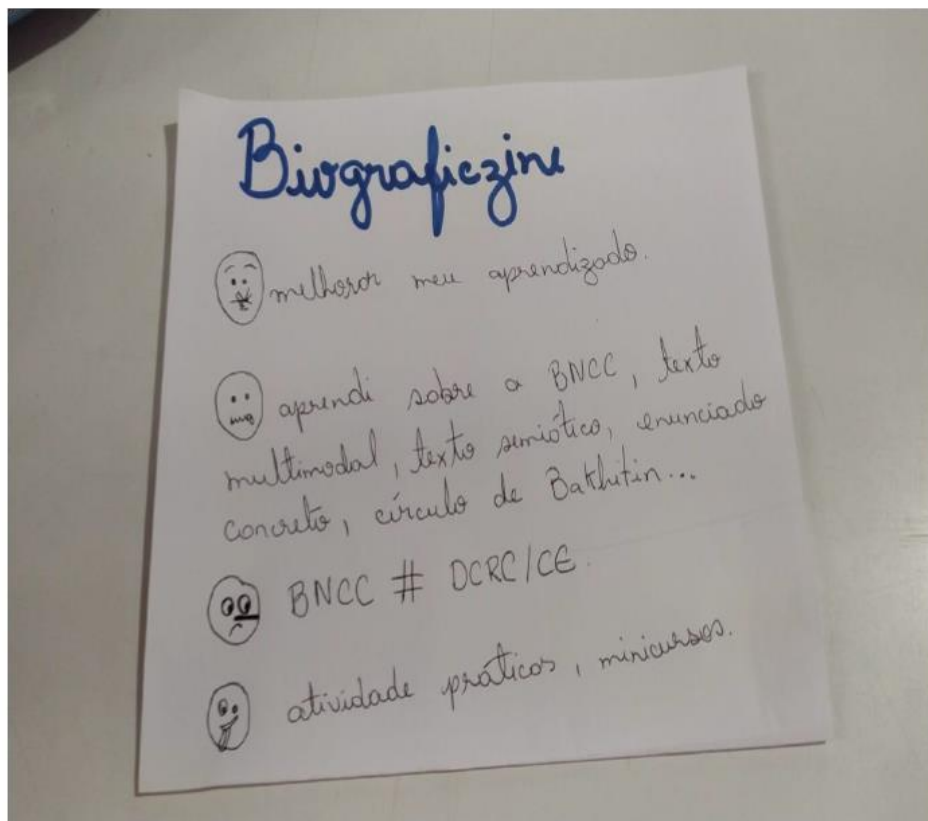 Biograficzine
melhorar meu aprendizado.
aprendi sobre a BNCC, texto
multimodal, texto semiótico, enunciado
concreto, círculo de Bakhitin...
BNCC # DCRC/CE.
atividade práticos, minicursos.